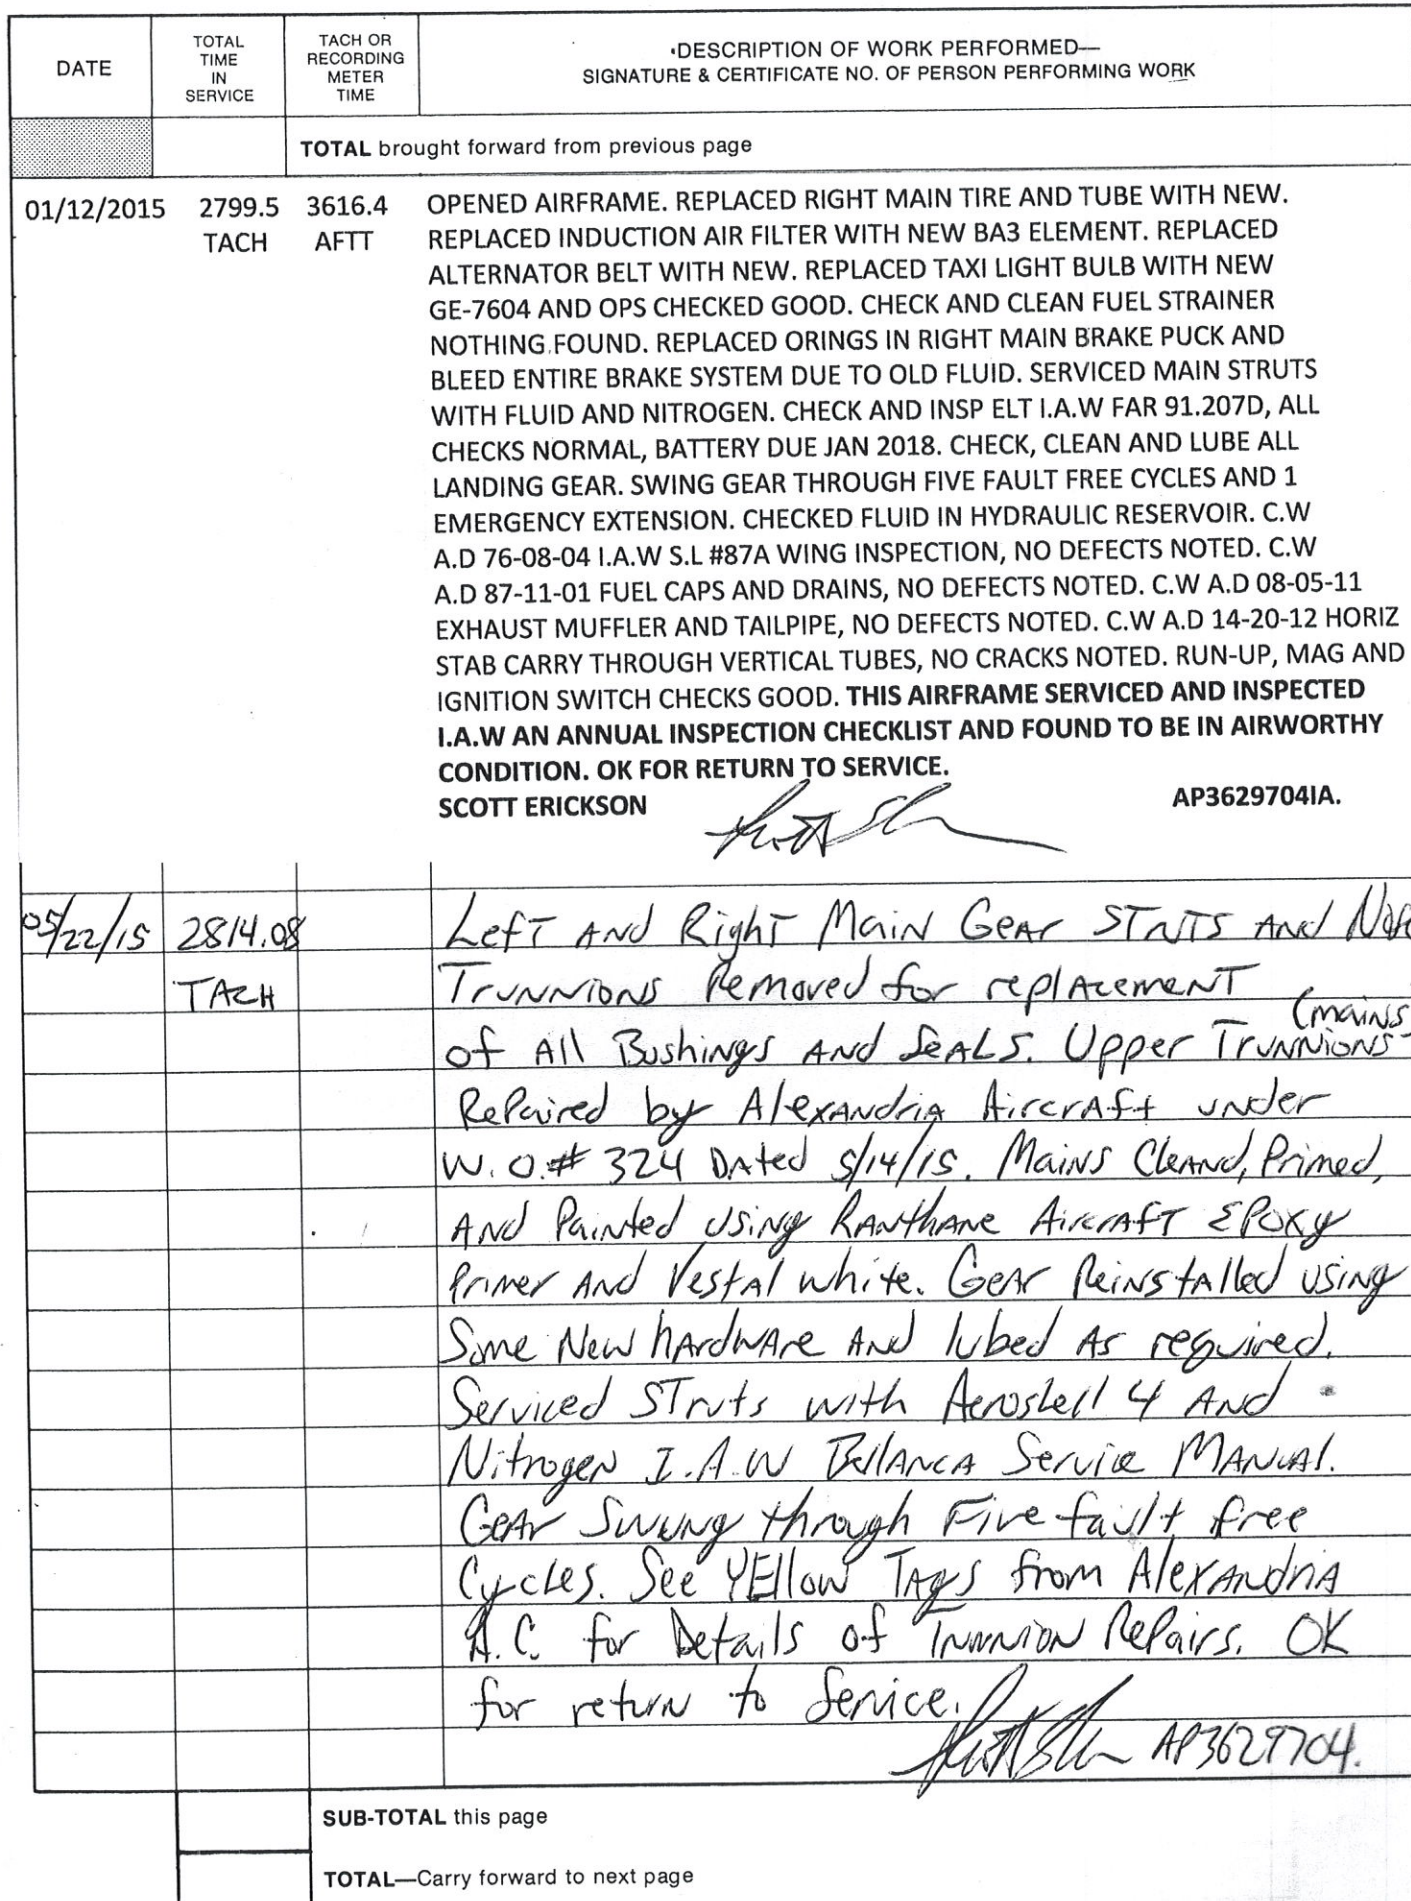 DATE
TOTAL
TIME
IN
SERVICE
TACH OR
RECORDING
METER
TIME
DESCRIPTION OF WORK PERFORMED—
SIGNATURE & CERTIFICATE NO. OF PERSON PERFORMING WORK
TOTAL brought forward from previous page
01/12/2015 2799.5 3616.4 OPENED AIRFRAME. REPLACED RIGHT MAIN TIRE AND TUBE WITH NEW.
TACH AFTT REPLACED INDUCTION AIR FILTER WITH NEW BA3 ELEMENT. REPLACED
ALTERNATOR BELT WITH NEW. REPLACED TAXI LIGHT BULB WITH NEW
GE-7604 AND OPS CHECKED GOOD. CHECK AND CLEAN FUEL STRAINER
NOTHING FOUND. REPLACED ORINGS IN RIGHT MAIN BRAKE PUCK AND
BLEED ENTIRE BRAKE SYSTEM DUE TO OLD FLUID. SERVICED MAIN STRUTS
WITH FLUID AND NITROGEN. CHECK AND INSP ELT I.A.W FAR 91.207D, ALL
CHECKS NORMAL, BATTERY DUE JAN 2018. CHECK, CLEAN AND LUBE ALL
LANDING GEAR. SWING GEAR THROUGH FIVE FAULT FREE CYCLES AND 1
EMERGENCY EXTENSION. CHECKED FLUID IN HYDRAULIC RESERVOIR. C.W
A.D 76-08-04 I.A.W S.L #87A WING INSPECTION, NO DEFECTS NOTED. C.W
A.D 87-11-01 FUEL CAPS AND DRAINS, NO DEFECTS NOTED. C.W A.D 08-05-11
EXHAUST MUFFLER AND TAILPIPE, NO DEFECTS NOTED. C.W A.D 14-20-12 HORIZ
STAB CARRY THROUGH VERTICAL TUBES, NO CRACKS NOTED. RUN-UP, MAG AND
IGNITION SWITCH CHECKS GOOD. THIS AIRFRAME SERVICED AND INSPECTED
I.A.W AN ANNUAL INSPECTION CHECKLIST AND FOUND TO BE IN AIRWORTHY
CONDITION. OK FOR RETURN TO SERVICE.
SCOTT ERICKSON AP3629704IA.
05/22/15 2814.08 Left AND Right Main Gear STRUTS AND
TACH Trunnions Removed for replacement
(mains
of All Bushings AND SeALS. Upper Trunnions
Repaired by Alexandria Aircraft under
W.O.# 324 Dated 5/14/15. Mains Cleand, Primed,
AND Painted Using RANthane Aircraft EPoxy
Primer AND Vestal white. Gear Reinstalled using
Some New hardware AND lubed As required.
Serviced STruts with Aeroshell 4 AND
Nitrogen I.A.W Bellanca Service MANUAl.
Gear Swung through Five fault free
Cycles. See YEllow TAgs from Alexandria
A.C. for Details of Trunnion Repairs. OK
for return to Service.
AP3629704.
SUB-TOTAL this page
TOTAL—Carry forward to next page